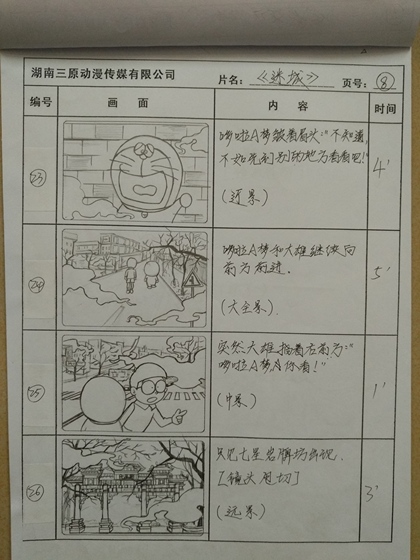 湖南三原动漫传媒有限公司 片名: 《迷城》 页号: ⑧
编号 画面 内容 时间
㉓ 哆啦A梦皱着眉头:"不知道,
不如先到别的地方看看吧!"
(近景)
4'
㉔ 哆啦A梦和大雄继续向
前方前进.
(大全景).
5'
㉕ 突然大雄指着左前方:"
哆啦A梦你看!"
(中景)
1'
㉖ 只见七星岩牌坊出现.
[镜头切]
(远景)
3'